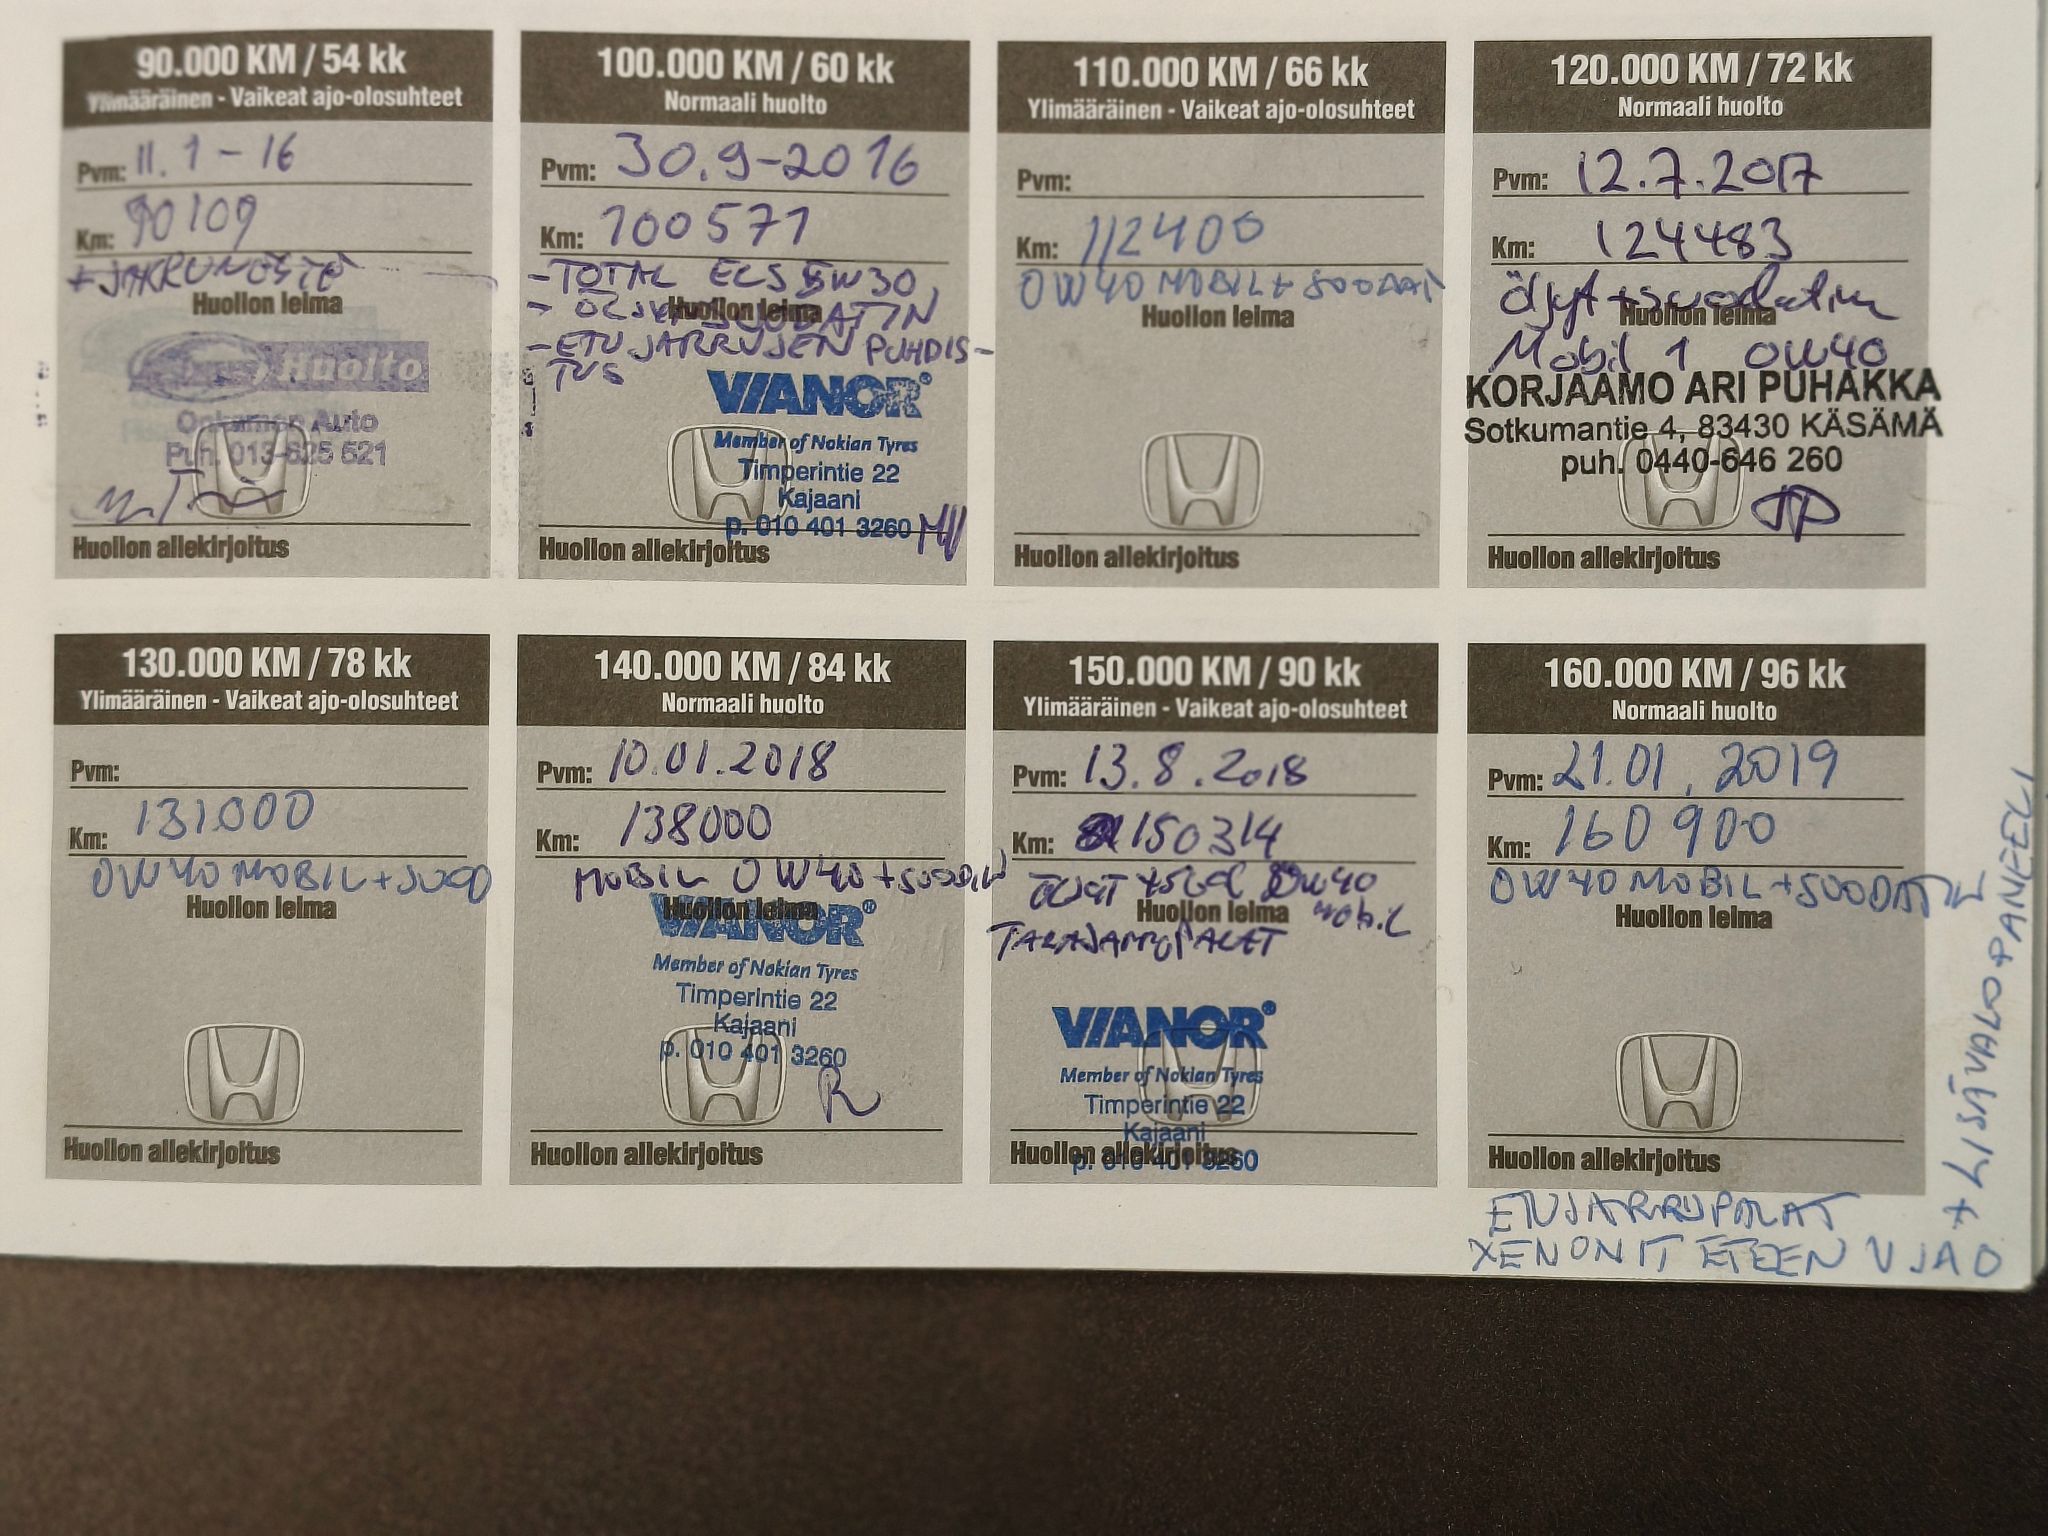 90.000 KM / 54 kk
Ylimääräinen - Vaikeat ajo-olosuhteet
Pvm: 11.1-16
Km: 90109
+ JARRUNESTE
Huollon leima
Huolto
Auto
Puh. 013-625 521
Huollon allekirjoitus
100.000 KM / 60 kk
Normaali huolto
Pvm: 30.9-2016
Km: 100571
-TOTAL ECS 5W30
Huollon leima
-ETUJARRUJEN PUHDIS-
TUS
VIANOR®
Member of Nokian Tyres
Timperintie 22
Kajaani
p. 010 401 3260
Huollon allekirjoitus
110.000 KM / 66 kk
Ylimääräinen - Vaikeat ajo-olosuhteet
Pvm:
Km: 112400
0W40 MOBIL +
Huollon leima
Huollon allekirjoitus
120.000 KM / 72 kk
Normaali huolto
Pvm: 12.7.2017
Km: 124483
Öljyt + suodatin
Huollon leima
Mobil 1 0W40
KORJAAMO ARI PUHAKKA
Sotkumantie 4, 83430 KÄSÄMÄ
puh. 0440-646 260
Huollon allekirjoitus
130.000 KM / 78 kk
Ylimääräinen - Vaikeat ajo-olosuhteet
Pvm:
Km: 131000
0W40 MOBIL + SUOD
Huollon leima
Huollon allekirjoitus
140.000 KM / 84 kk
Normaali huolto
Pvm: 10.01.2018
Km: 138000
MOBIL 0W40 +
Huollon leima
VIANOR®
Member of Nokian Tyres
Timperintie 22
Kajaani
p. 010 401 3260
Huollon allekirjoitus
150.000 KM / 90 kk
Ylimääräinen - Vaikeat ajo-olosuhteet
Pvm: 13.8.2018
Km: 150314
0W40
Huollon leima
Mobil
TAKAJARRUPALAT
VIANOR®
Member of Nokian Tyres
Timperintie 22
Kajaani
p. 010 401 3260
Huollon allekirjoitus
160.000 KM / 96 kk
Normaali huolto
Pvm: 21.01.2019
Km: 160900
0W40 MOBIL +
Huollon leima
Huollon allekirjoitus
ETUJARRUPALAT
XENONIT ETEEN V JA O
+ LISÄVALOPANEELI